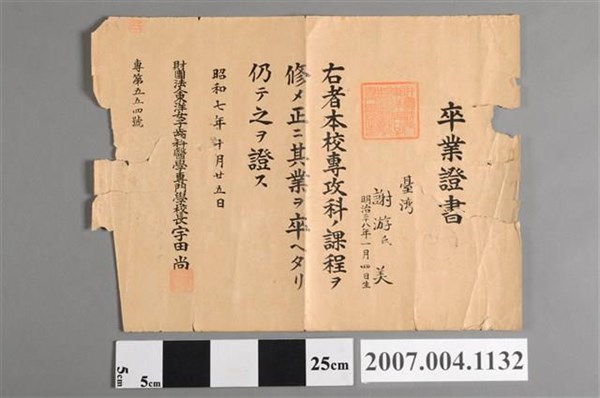 卒業證書
臺湾
謝游氏 美
明治三十八年一月四日生
右者本校專攻科ノ課程ヲ
修メ正ニ其業ヲ卒ヘタリ
仍テ之ヲ證ス
昭和七年十月廿五日
財團法人東洋女子歯科醫學專門學校長宇田 尚
專第五五四號
5cm
5cm
25cm
2007.004.1132